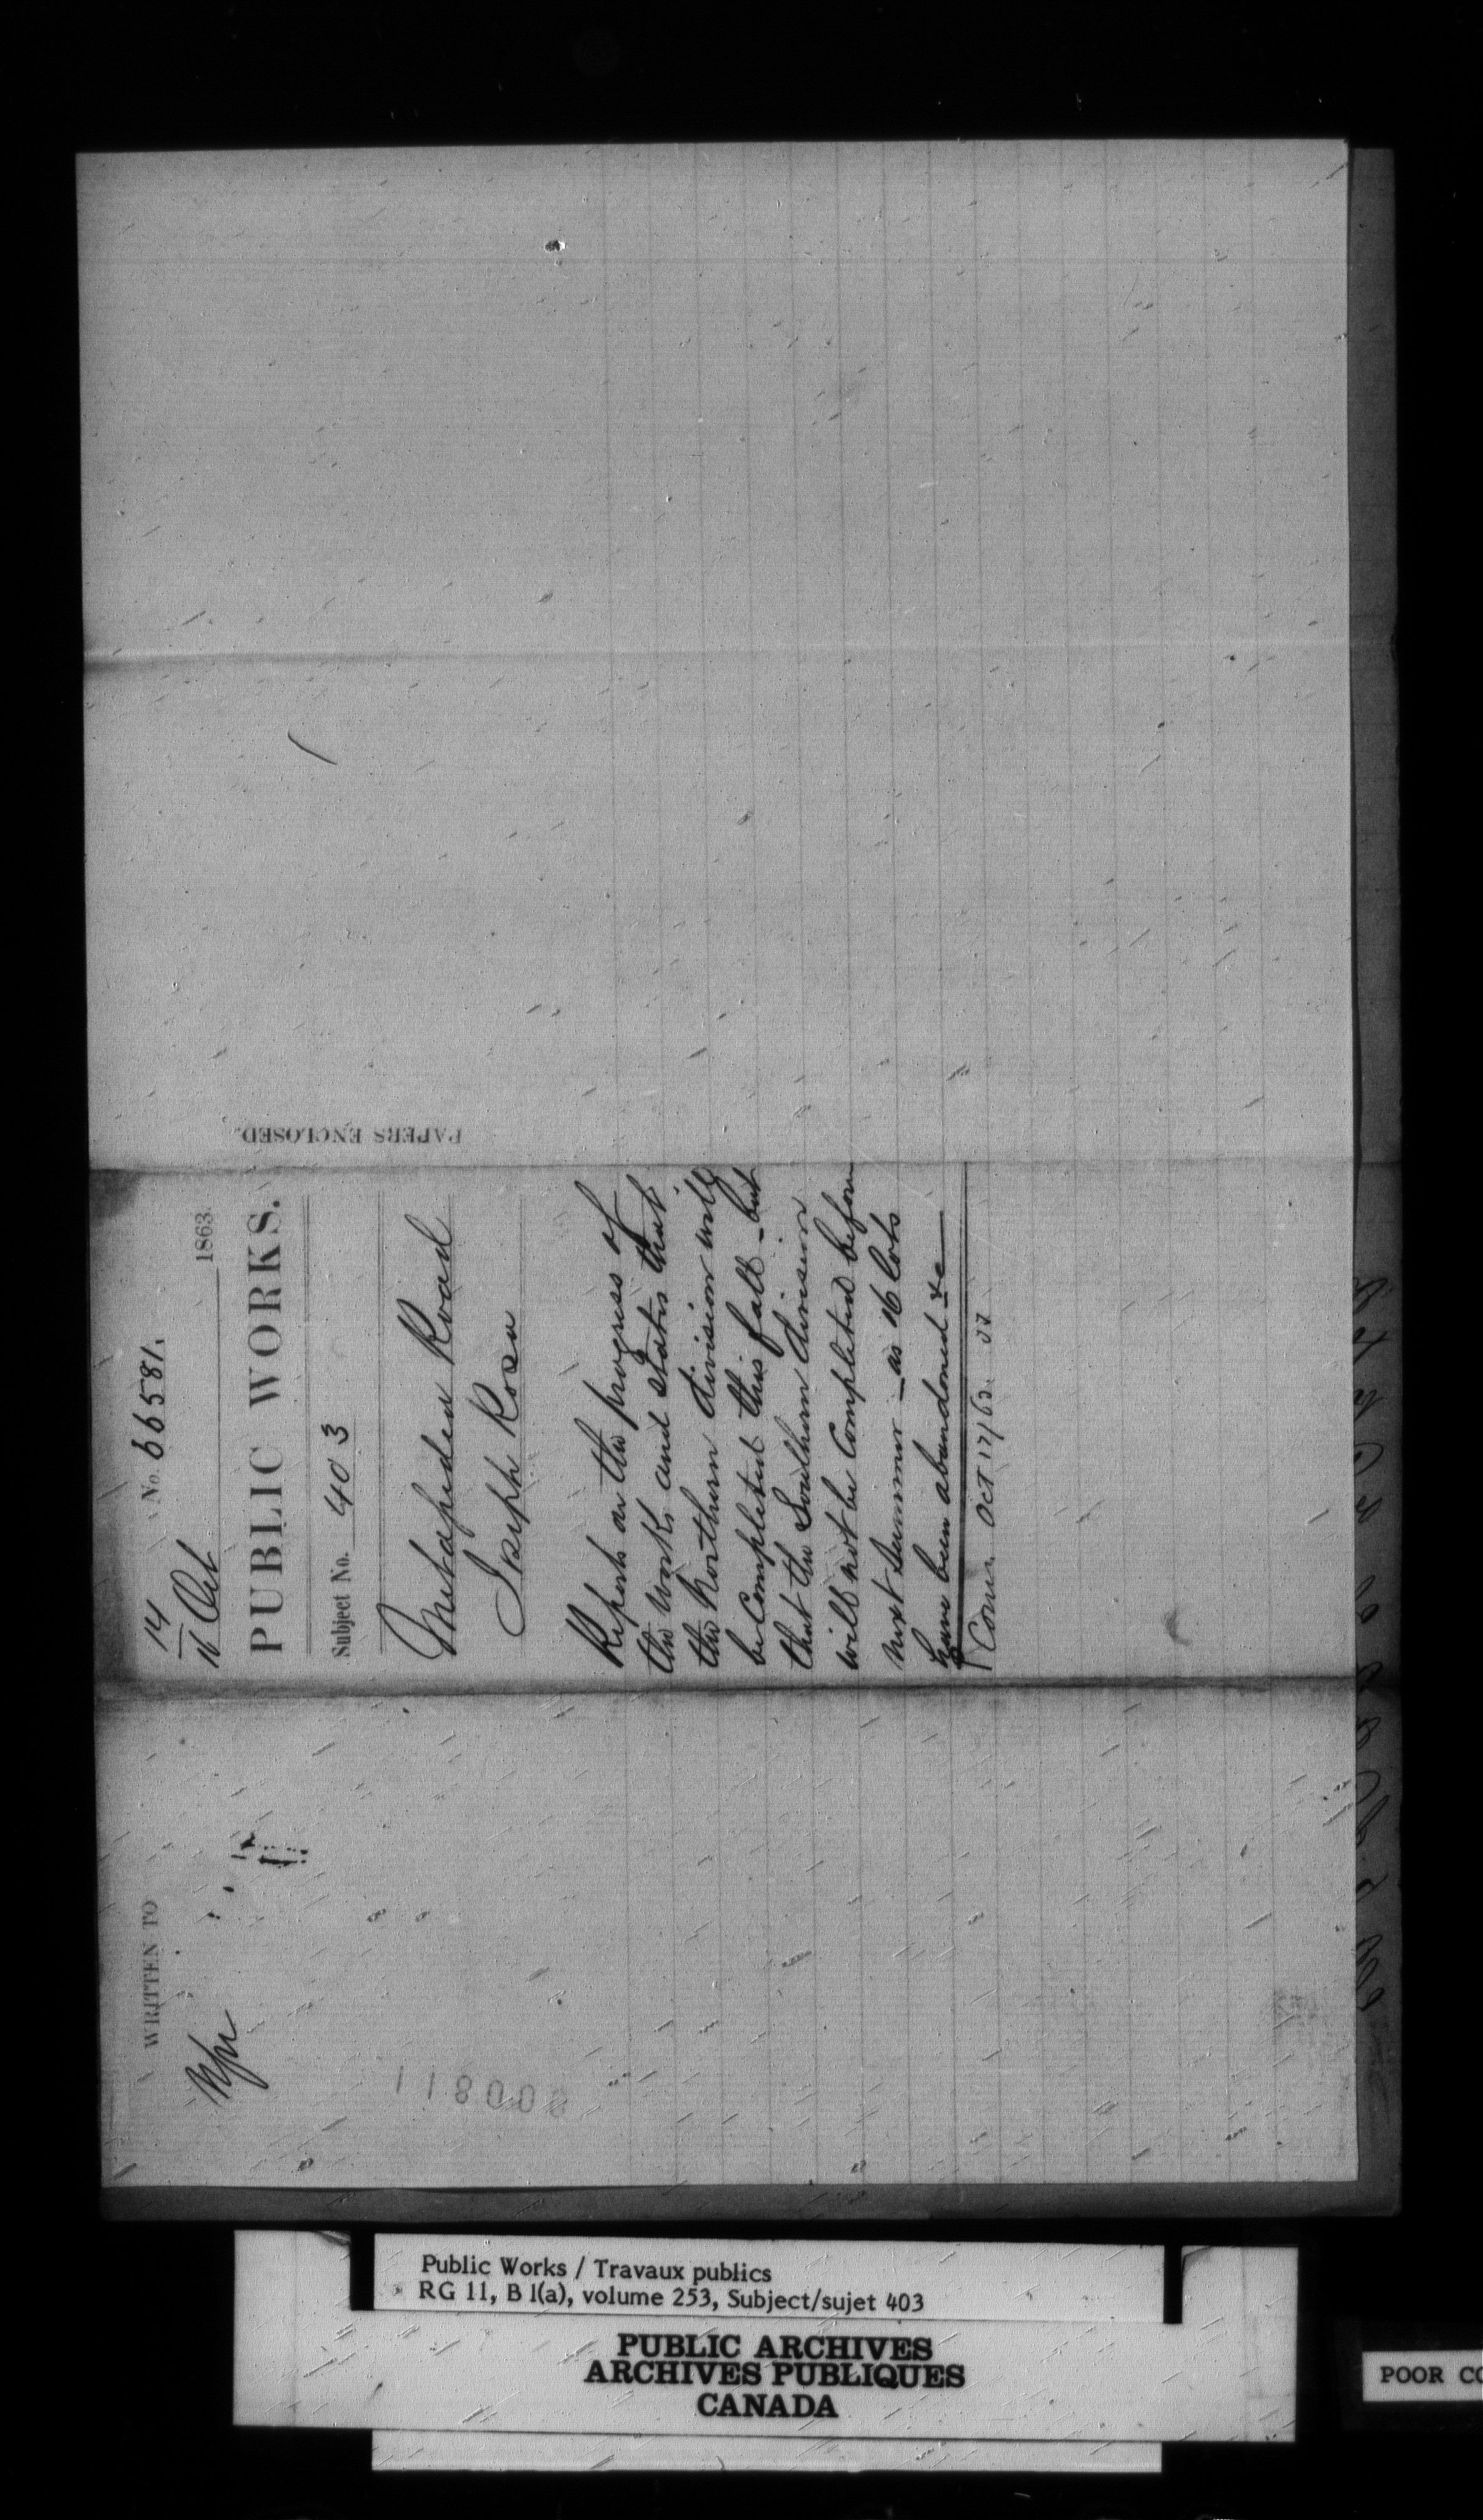 14
16 Oct
No. 66581.
1863.
PUBLIC WORKS.
Subject No. 403
Metapedia Road
Joseph Rosa
Reports on the progress of
the works and states that
the Northern division will
be Completed this fall - but
that the Southern division
will not be Completed before
next summer - as 16 lots
have been abandoned &c
Com. Oct 17/63.
PAPERS ENCLOSED.
WRITTEN TO
Public Works / Travaux publics
RG 11, B 1(a), volume 253, Subject/sujet 403
PUBLIC ARCHIVES
ARCHIVES PUBLIQUES
CANADA
POOR CO